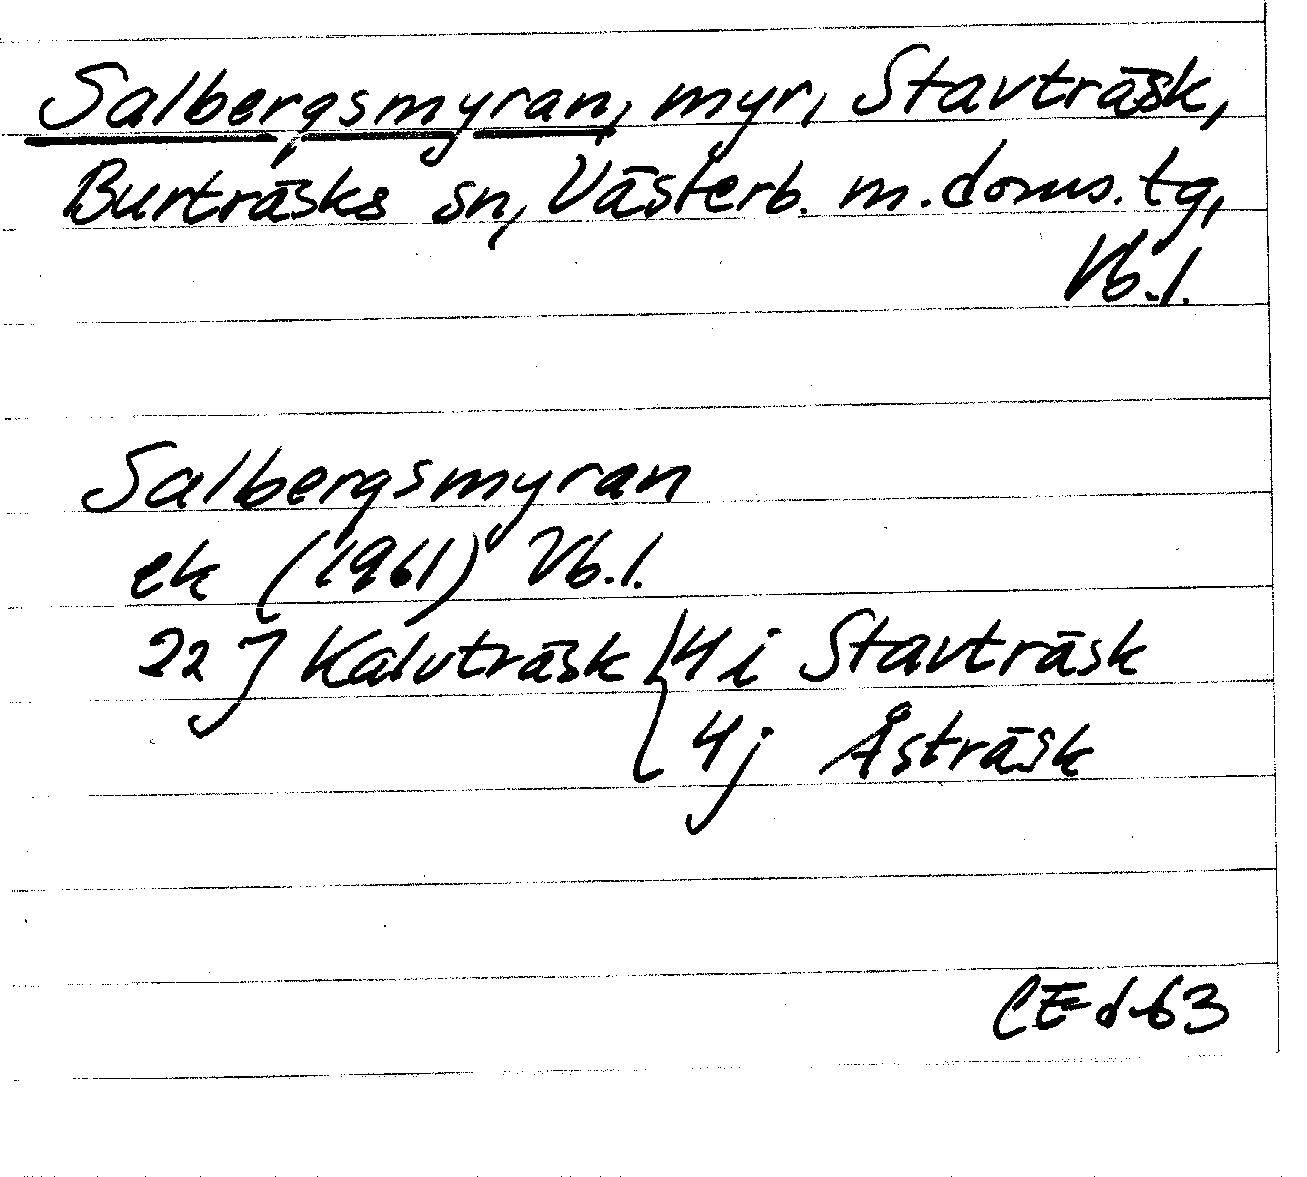 Salbergsmyran, myr, Stavträsk,
Burträsks sn, Västerb. m. doms. tg,
Vb. l.
Salbergsmyran
ek (1961) Vb. l.
22 J Kalvträsk { 4 i Stavträsk
4 j Åsträsk
CEd-63